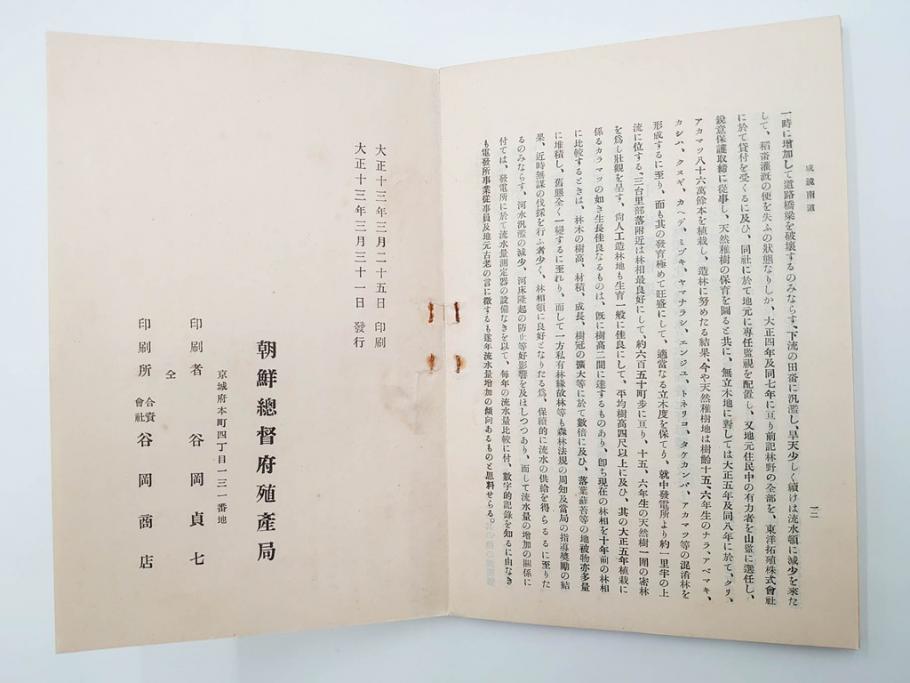 咸鏡南道
一時に增加して道路橋梁を破壞するのみならす、下流の田畓に汎濫し、旱天少しく續けは流水頓に減少を來た
して、稻畓灌漑の便を失ふの狀態なりしか、大正四年及同七年に亘り前記林野の全部を、東洋拓殖株式會社
に於て貸付を受くるに及ひ、同社に於て地元に專任監視を配置し、又地元住民中の有力者を山監に選任し、
銳意保護取締に從事し、天然稚樹の保育を圖ると共に、無立木地に對しては大正五年及同八年に於て、クリ、
アカマツ八十六萬餘本を植栽し、造林に努めたる結果、今や天然稚樹地は樹齡十五、六年生のナラ、アベマキ、
カシハ、クヌギ、カヘデ、ミヅキ、ヤマナラシ、エンジユ、トネリコ、タケカンバ、アカマツ等の混淆林を
形成するに至り、而も其の發育極めて旺盛にして、適當なる立木度を保てり、就中發電所より約一里半の上
流に位する、三台里部落附近は林相最良好にして、約六百五十町步に亘り、十五、六年生の天然樹一團の密林
を爲し壯觀を呈す、尙人工造林地も生育一般に佳良にして、平均樹高四尺以上に及ひ、其の大正五年植栽に
係るカラマツの如き生長佳良なるものは、既に樹高二間に達するものあり、卽ち現在の林相を十年前の林相
に比較するときは、林木の樹高、材積、成長、樹冠の擴大等に於て數倍に及ひ、落葉蘚苔等の地被物亦多量
に堆積し、舊態全く一變するに至れり、而して一方私有林緣故林等も森林法規の周知及當局の指導奬勵の結
果、近時無謀の伐採を行ふ者少く、林相頓に良好となりたる爲、保續的に流水の供給を得らるるに至りた
るのみならす、河水汎濫の減少、河床隆起の防止等好影響を及ほしつつあり、而して流水量の增加の關係に
付ては、發電所に於て流水量測定器の設備なきを以て、每年の流水量比較に付、數字的記錄を知るに由なき
も電發所事業從事員及地元古老の言に徵するも逐年流水量增加の傾向あるものと思料せらる。
大正十三年三月二十五日 印刷
大正十三年三月三十一日 發行
朝鮮總督府殖產局
京城府本町四丁目一三一番地
印刷者 谷岡貞七
仝
印刷所 合資會社 谷岡商店